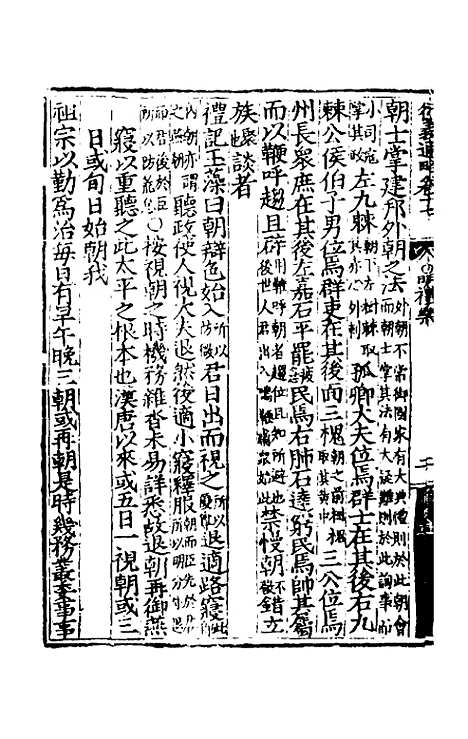 衍義通略卷十七 明禮樂
朝士掌建邦外朝之法外朝不常御國家有大典禮則於此朝會而朝士掌其法有大疑難則於此詢事而
小司寇掌其政左九棘孤卿大夫位焉群士在其後右九
棘公侯伯子男位焉群吏在其後面三槐三公位焉
州長衆庶在其後左嘉石平罷民焉右肺石達窮民焉帥其屬
而以鞭呼趨且辟禁慢朝錯立
族聚也談者
禮記玉藻曰朝辯色始入所以防微君日出而視之退適路寢
聽政使人視大夫退然後適小寢釋服
○按視朝之時機務雜沓未易詳悉故退朝再御燕
寢以重聽之此太平之根本也漢唐以來或五日一視朝或三
日或旬日始朝我
祖宗以勤爲治每日有早午晚三朝或再朝是時幾務叢委事事